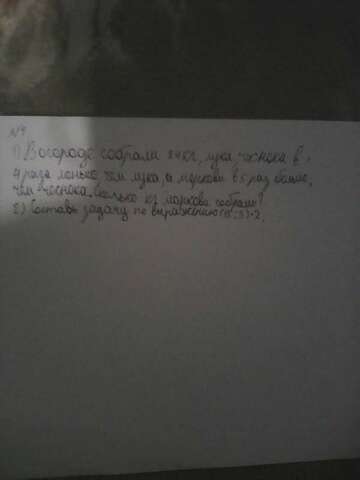 №4
1) В огороде собрали 84 кг, лука, чеснока в
4 раза меньше чем лука, а моркови в 5 раз больше,
чем чеснока. Сколько кг моркови собрали?
2) Составь задачу по выражению 2.